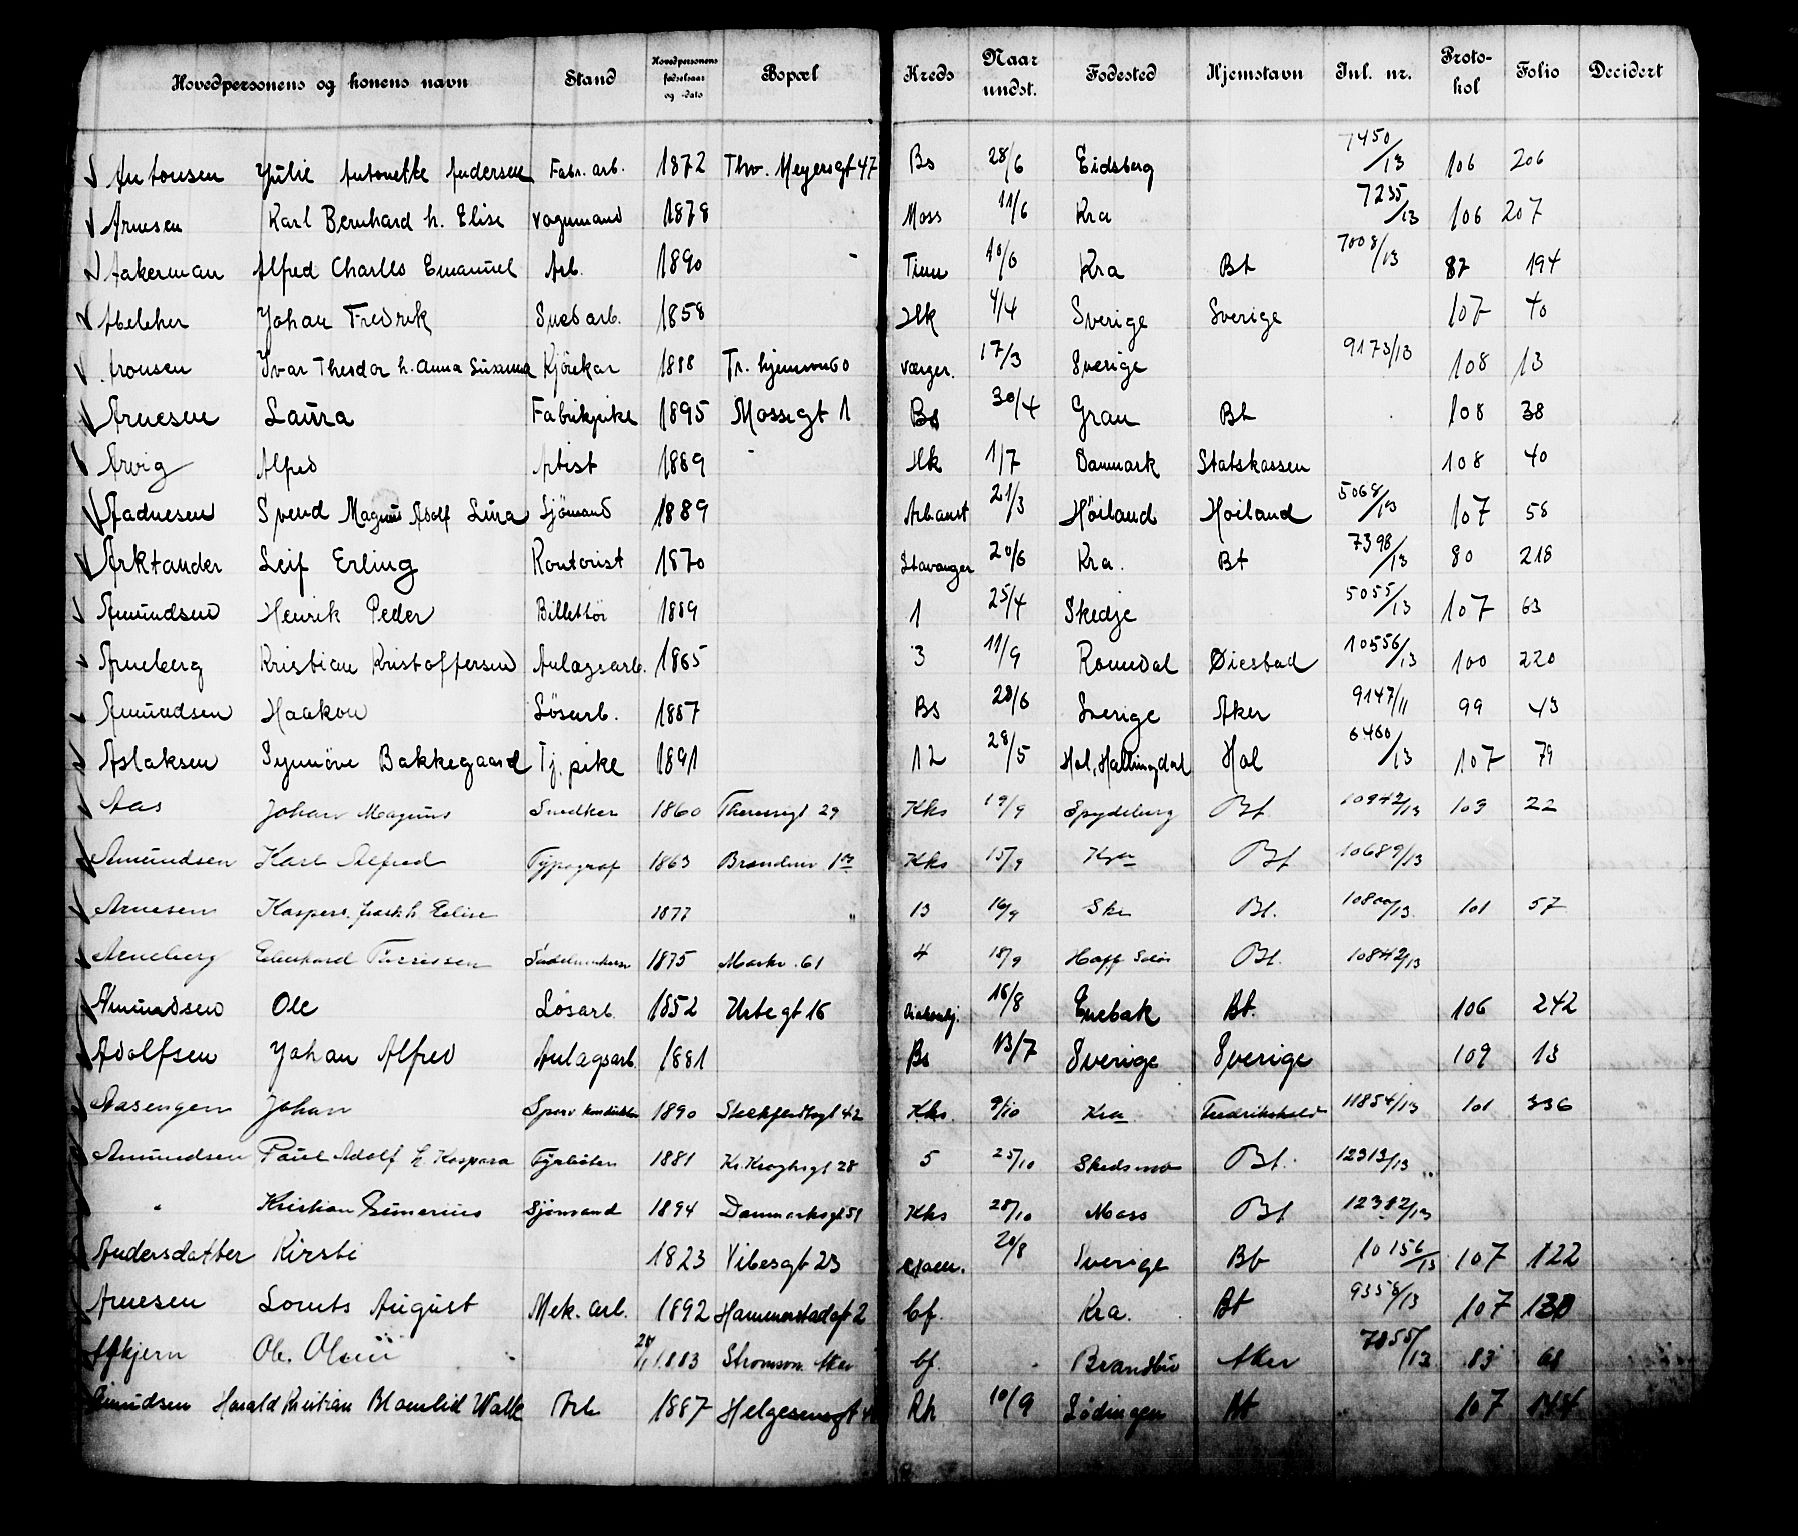 Hovedpersonens og konens navn Stand Hovedpersonens fødselsaar og -dato Bopæl Kreds Naar undst. Fødested Hjemstavn Inl. nr. Protokol Folio Decidert
Antonsen Julie Antonette Andersen Fabr. arb. 1872 Thv. Meyersgt 47 Bs 28/6 Eidsberg 7450/13 106 206
Arnesen Karl Bernhard h. Elise Vognmand 1878 Moss 11/6 Kra 7235/13 106 207
Aakerman Alfred Charles Emanuel Arb. 1890 - 10/6 Kra Bt 7008/13 87 194
Johan Fredrik 1858 Hk 4/4 Sverige Sverige 107 40
Aronsen Ivar Theodor h. Anna Susanna Kjørekar 1888 Tr. hjemsvn 60 værger. 17/3 Sverige 9173/13 108 13
Arnesen Laura Fabrikpike 1895 Mossegt 1 Bs 30/4 Gran Bt 108 38
Arvig Alfred Artist 1889 Hk 1/7 Danmark Statskassen 108 40
Aadnesen Svend Magnus Adolf Lura Sjömand 1889 Arbanst 21/3 Höiland Höiland 5068/13 107 58
Arktander Leif Erling Kontorist 1870 Stavanger 20/6 Kra. Bt 7398/13 80 218
Amundsen Henrik Peder Billettör 1889 1 25/4 Skedje 5055/13 107 63
Arneberg Kristian Kristoffersen Anlægsarb. 1865 3 11/9 Romedal Øiestad 10556/13 100 220
Amundsen Haakon Løsarb. 1887 Bs 28/6 Sverige Aker 9147/11 99 43
Aslaksen Synnöve Bakkegaard Tj. pike 1891 12 28/5 Hol, Hallingdal Hol 6460/13 107 79
Aas Johan Magnus Snedker 1860 Theresegt 29 Kks 19/9 Spydeberg Bt 10942/13 109 22
Amundsen Karl Alfred Typograf 1863 Kks 15/9 Kra Bt 10689/13
Arnesen Kaspers. h. Eline 1877 " 13 16/9 Ski Bt. 10800/13 101 57
Arneberg Torrissen 1875 Markv. 61 4 18/9 Hoff Solør Bt. 10842/13
Amundsen Ole Løsarb. 1852 Urtegt 16 Diakonhj. 16/8 Enebak Bt. 106 242
Adolfsen Johan Alfred Anlagsarb. 1881 Bs 13/7 Sverige Sverige 109 13
Aasengen Johan Sporv konduktør 1890 Stockfledtsgt 42 Kks. 9/10 Kra Fredrikshald 11854/13 101 336
Amundsen Paul Adolf h. Kaspara Fyrbøter 1881 Kr. Kroghsgt 28 5 25/10 Skedsmo Bt. 12313/13
" Kristian Sjömand 1894 Danmarksgt 51 Kks 28/10 Moss Bt 12382/13
Andersdatter Kirsti 1823 Vibesgt 23 20/8 Sverige Bt 10156/13 107 122
Arnesen Lorents August Mek. arb. 1892 Hammerstadgt 2 bf. Kra. Bt 9358/13 107 130
Ole Olsen 1883 Aker bf. Brandbu Aker 7855/13 83 68
Amundsen Harald Kristian Arb 1887 Helgesensgt Rh 10/9 Lödingen Bt 107 144